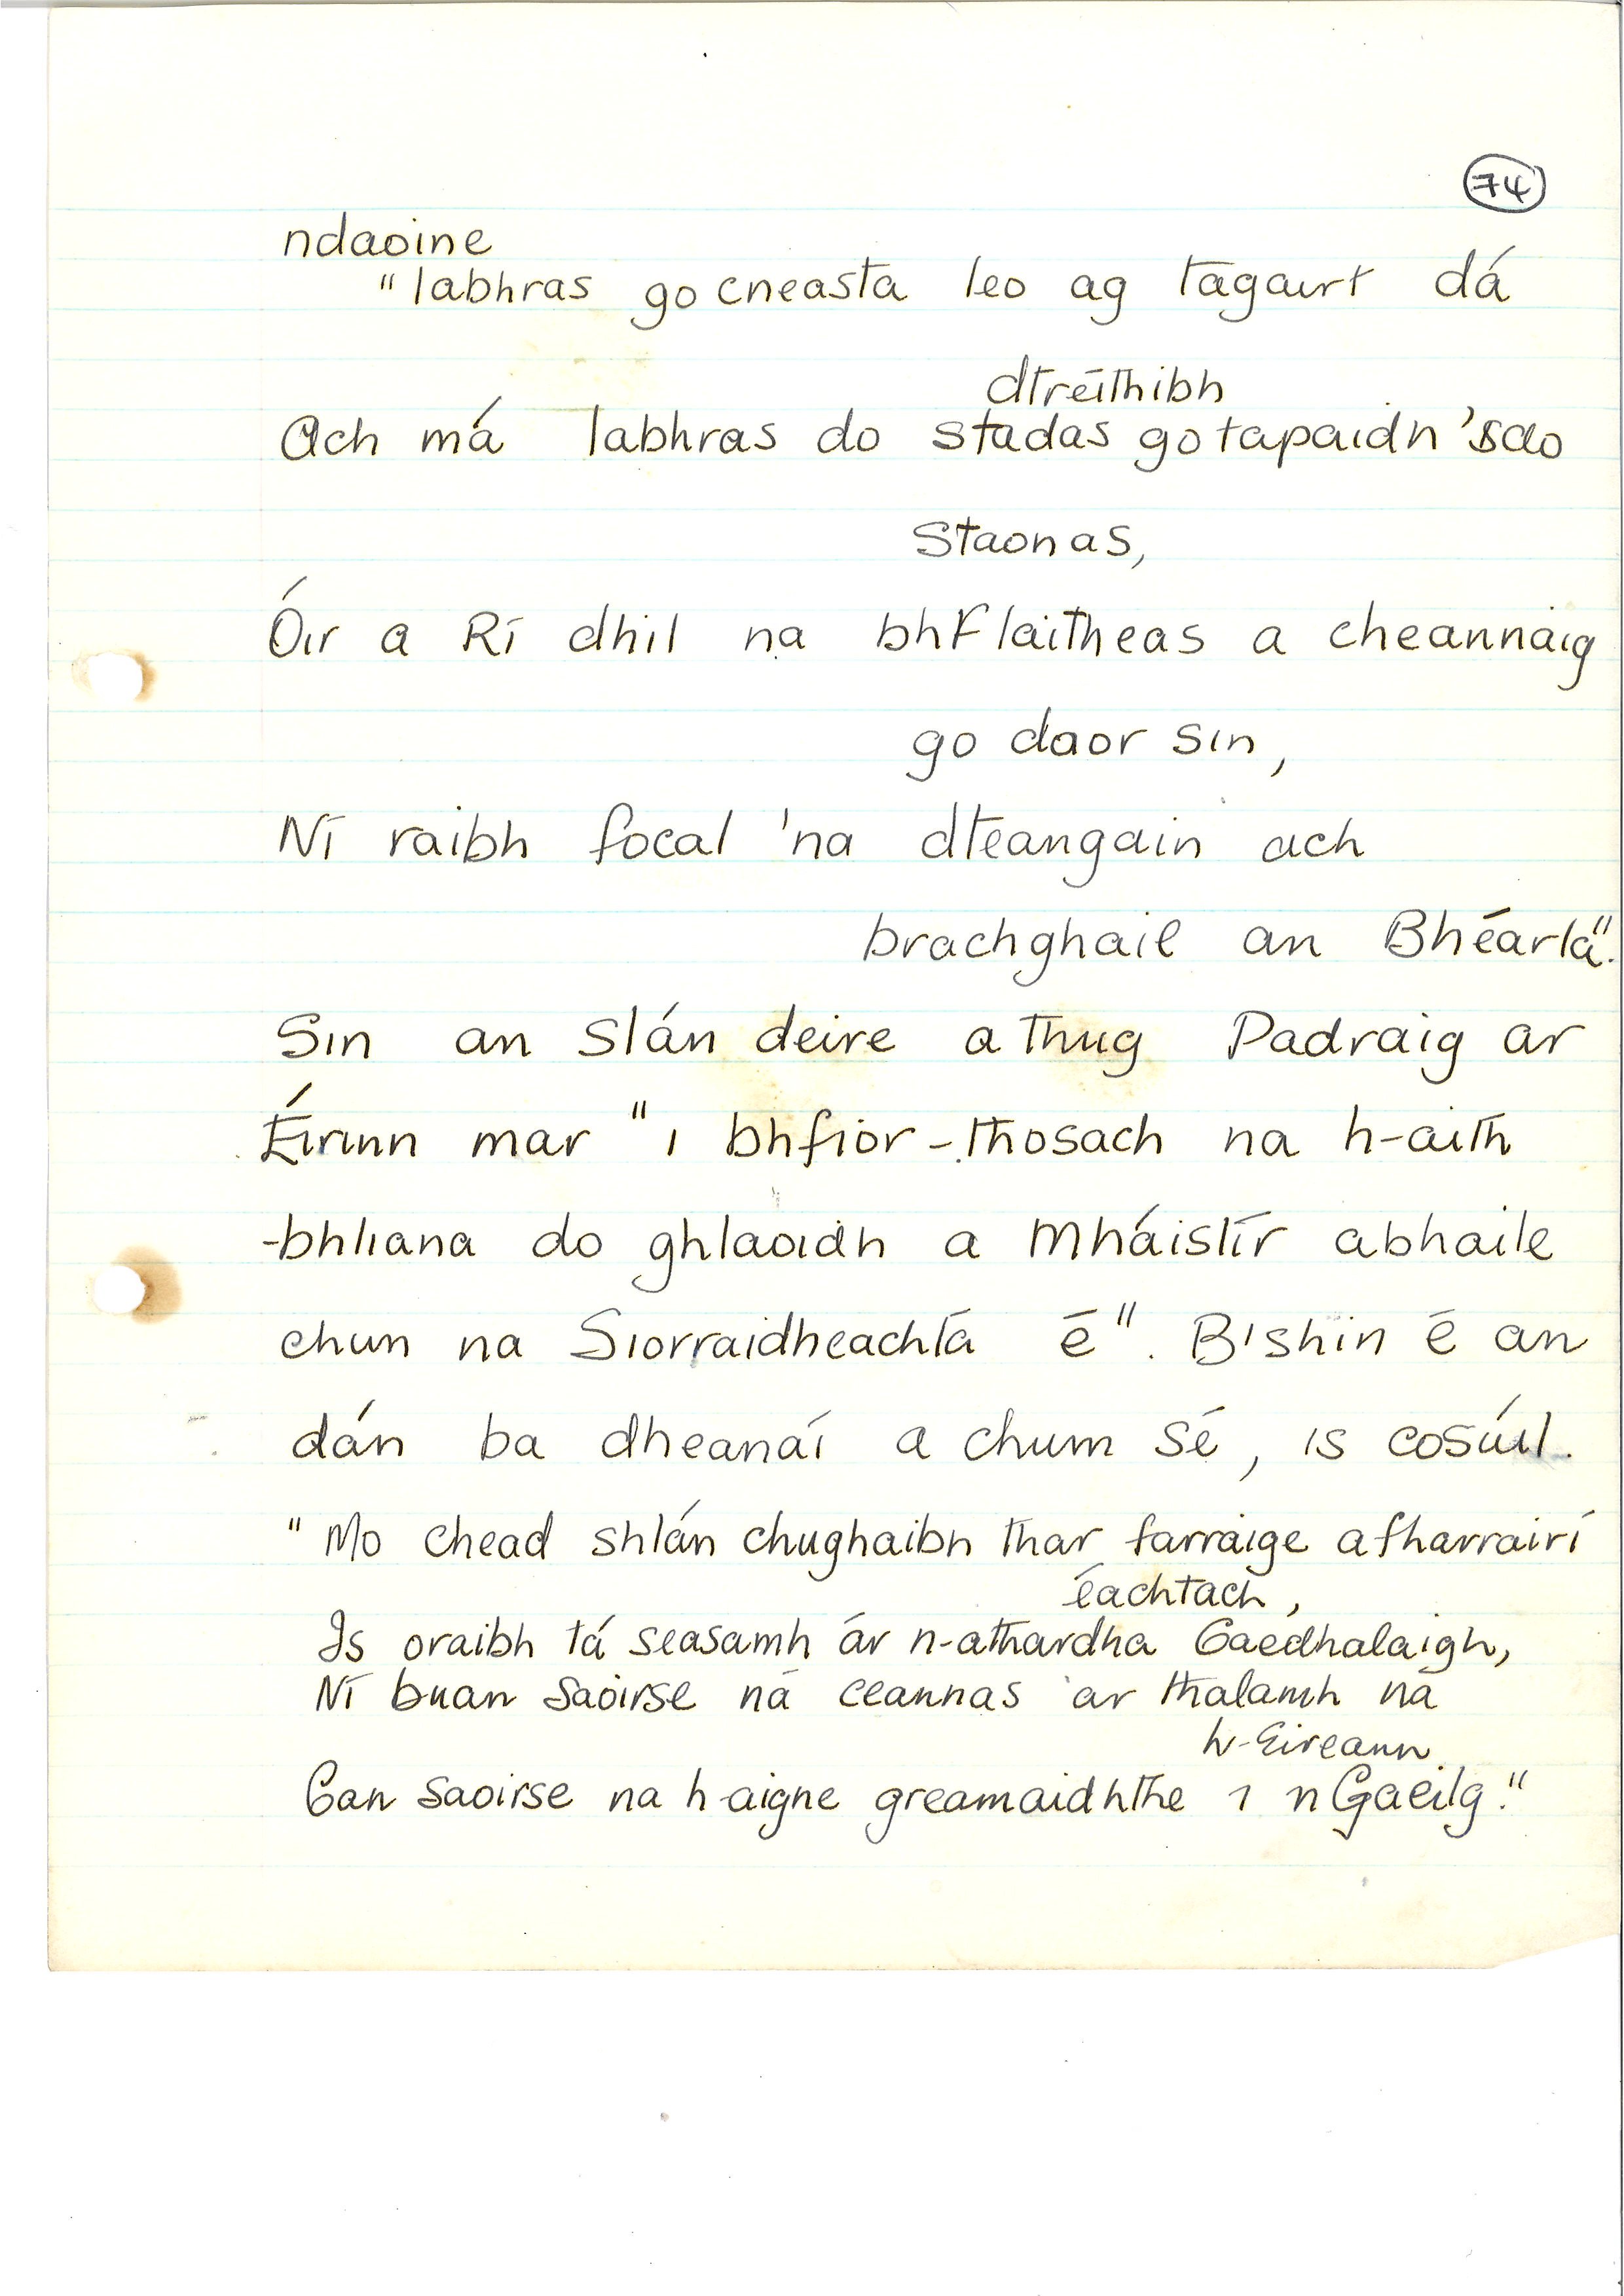 74
ndaoine
"labhras go cneasta leo ag tagairt dá
dtréithibh
Ach má labhras do stadas go tapaidh 'sdo
staonas,
Óir a Rí dhil na bhFlaitheas a cheannaig
go daor sin,
Ní raibh focal 'na dteangain ach
brachghail an Bhéarla".
Sin an slán deire a thug Padraig ar
Éirinn mar "i bhfíor-thosach na h-aith
-bhliana do ghlaoidh a Mháistír abhaile
chun na Síorraidheachta é". B'shin é an
dán ba dheanaí a chum sé, is cosúil.
"Mo chead shlán chughaibh thar farraige a fharrairí
éachtach,
Is oraibh tá seasamh ár n-athardha Gaedhalaigh,
Ní buan saoirse ná ceannas ar thalamh na
h-Eireann
Gan saoirse na h-aigne greamaidhthe i nGaeilg."